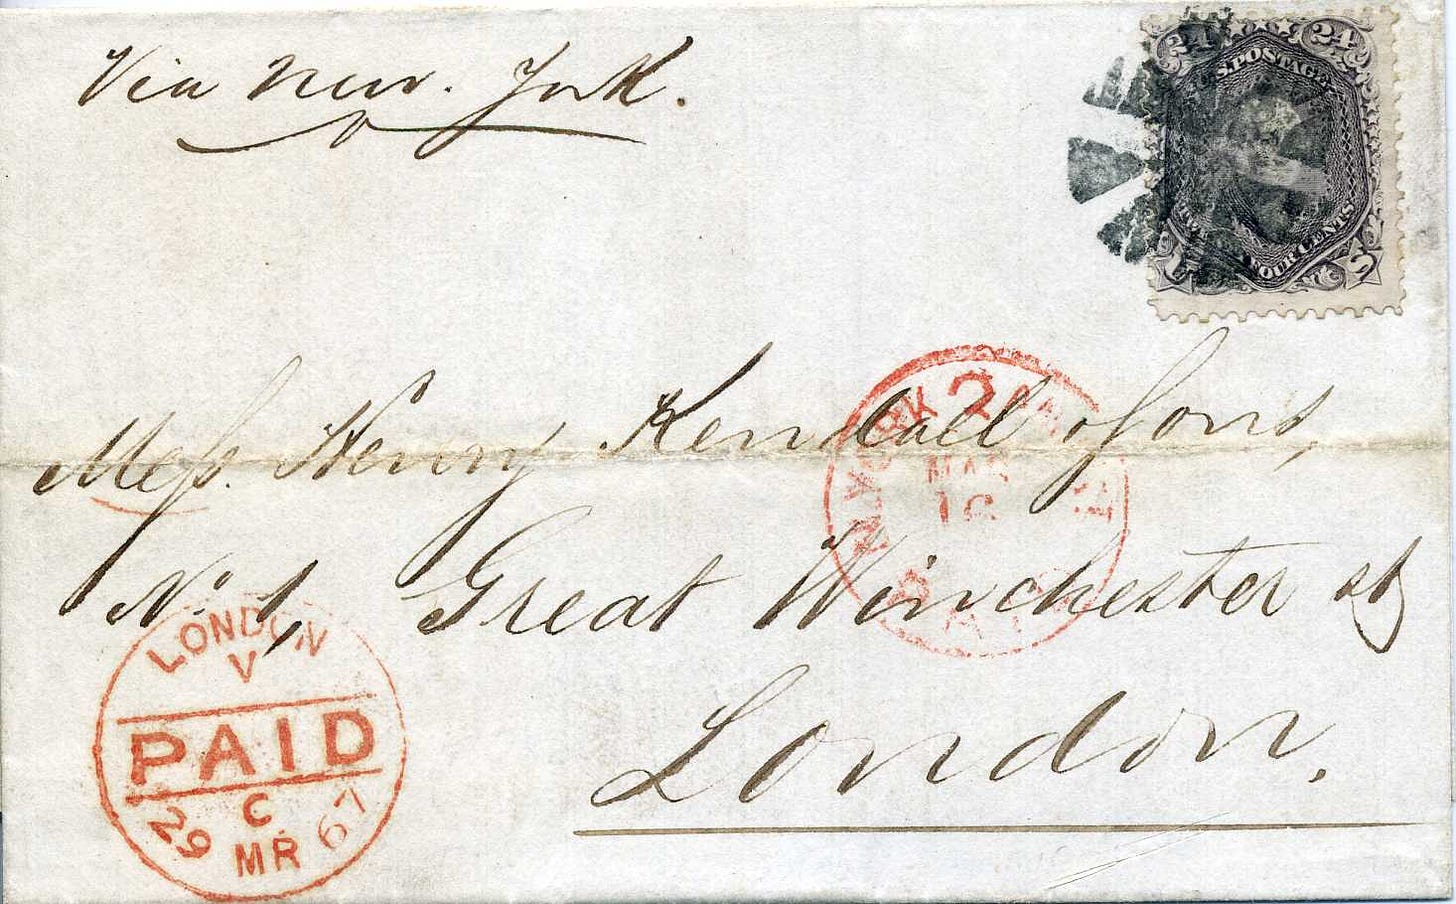 Via New. York.
24
U.S. POSTAGE
FOUR CENTS
Mess. Henry Kendall & Sons,
N. YORK
2
PAID
MAR
No. 1, Great Winchester St
London.
LONDON
V
PAID
C
29 MR 67